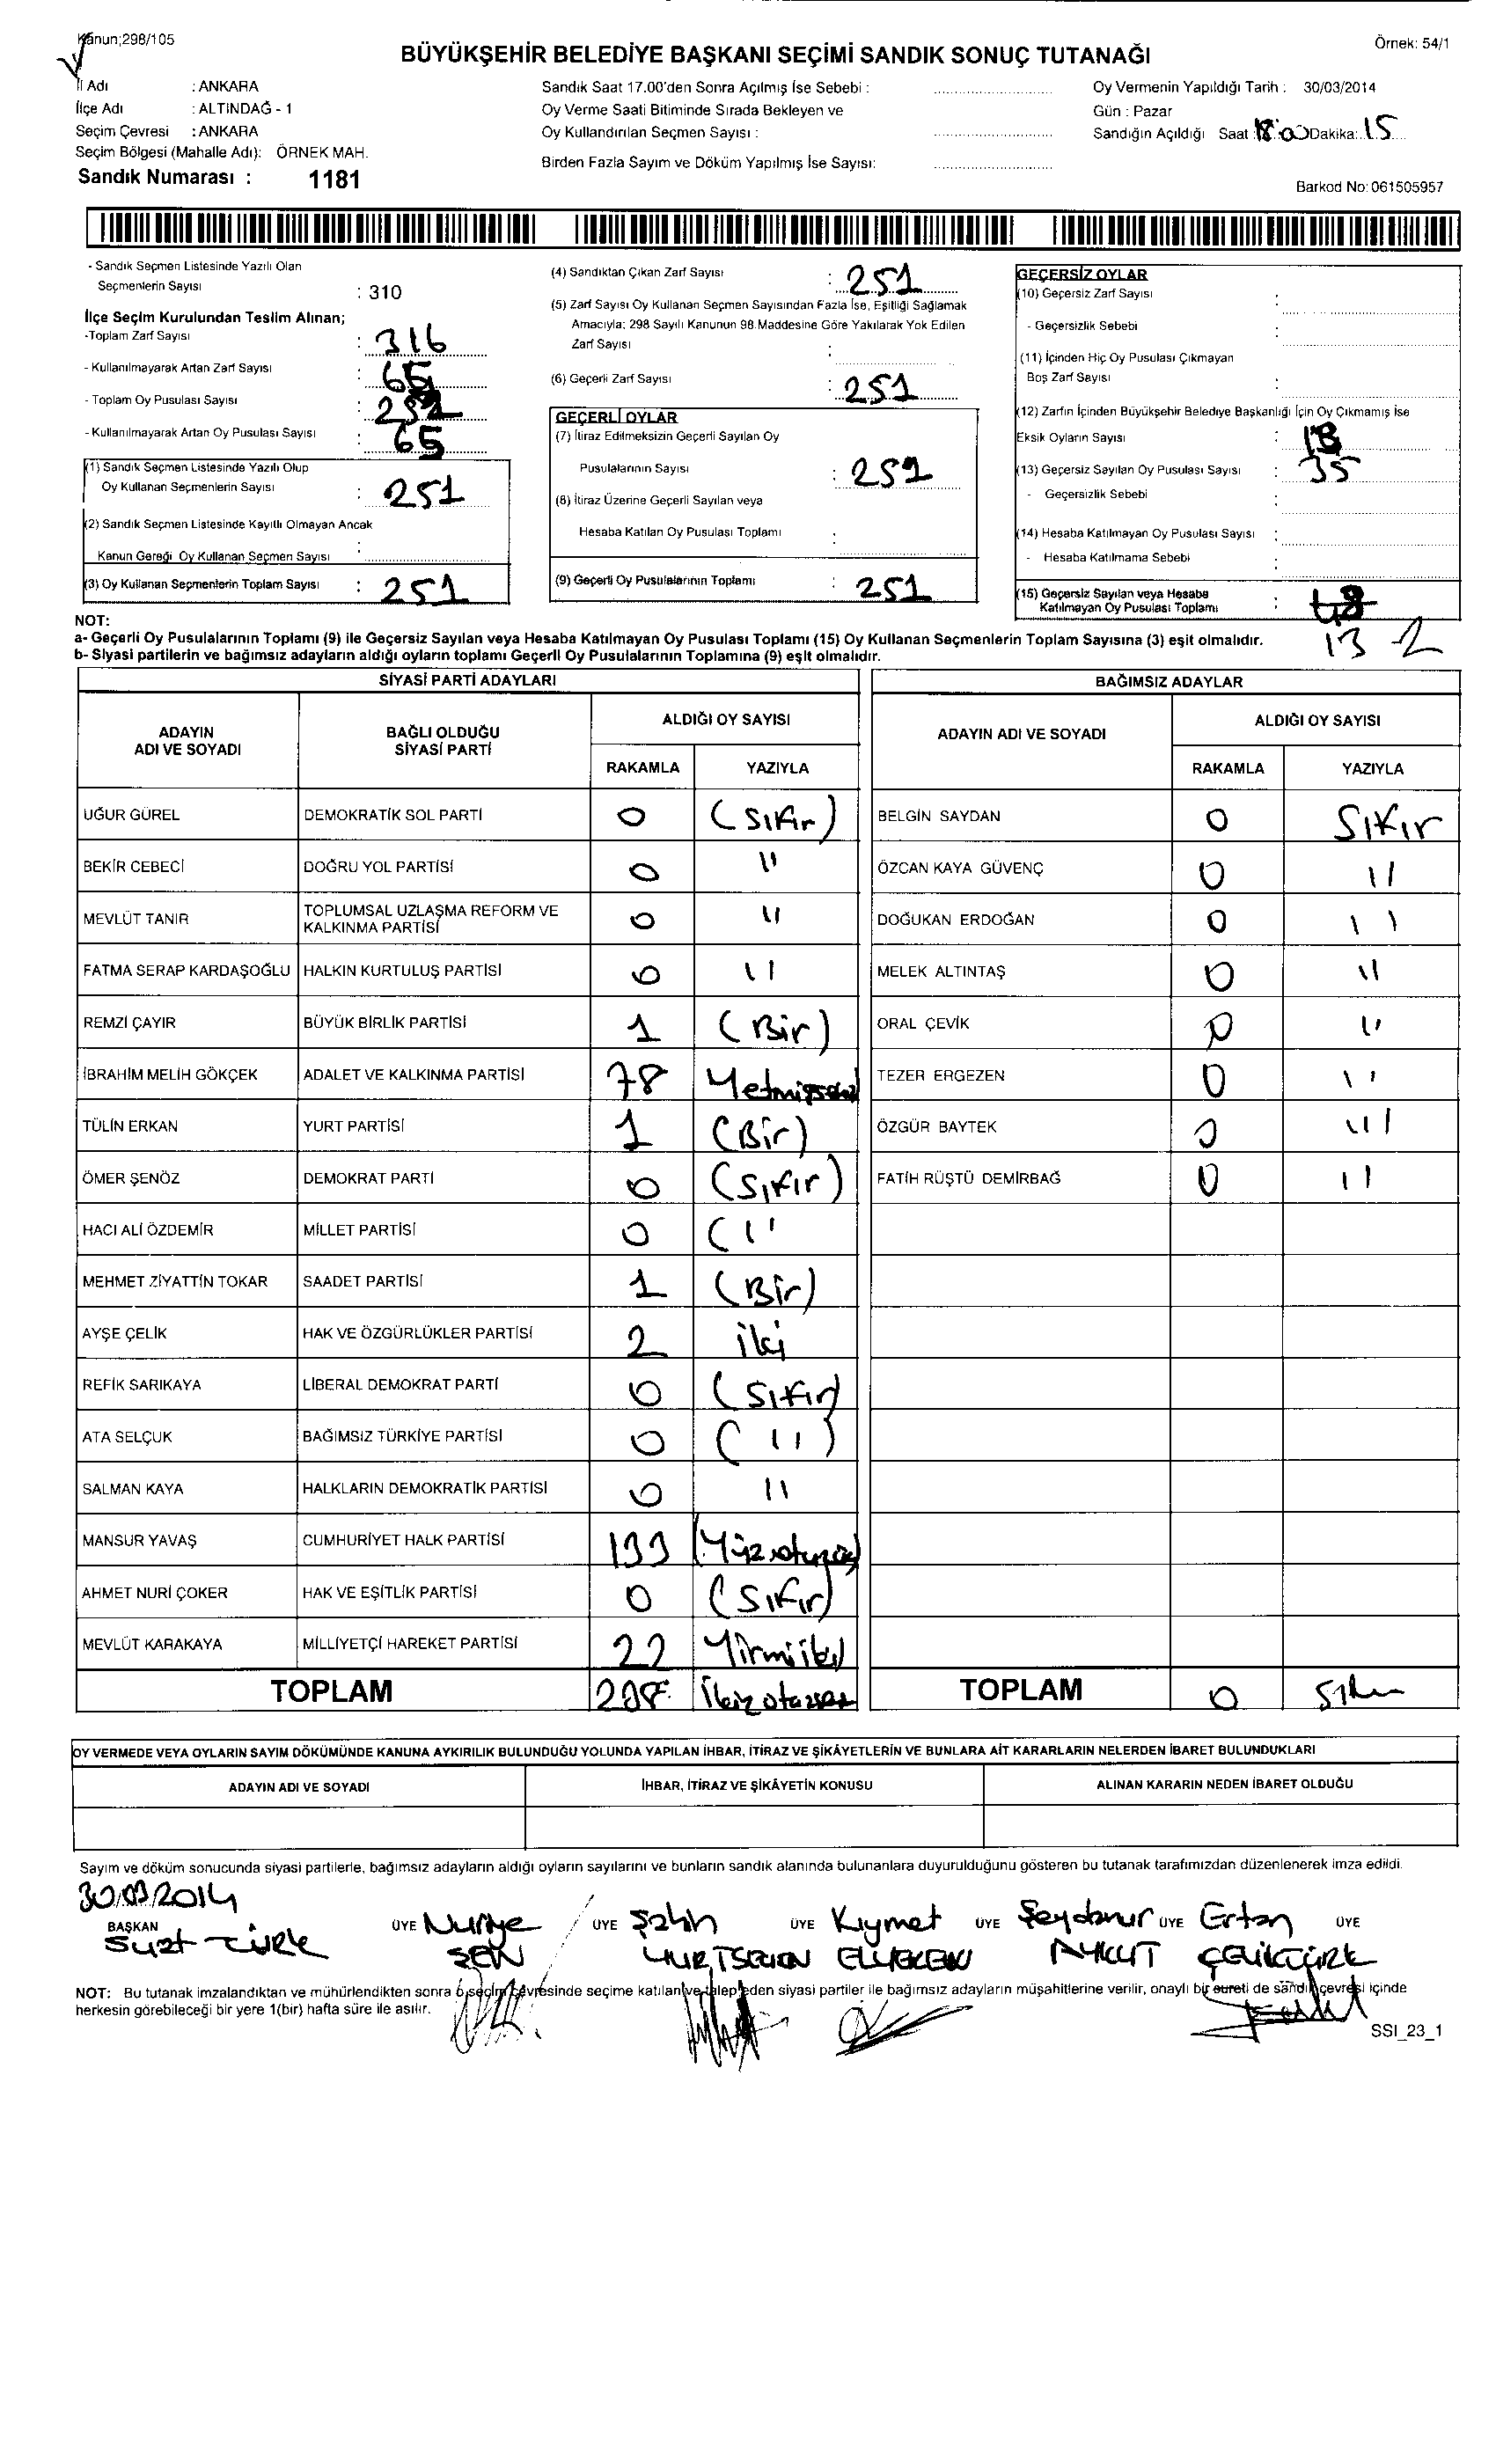 Kanun;298/105
Örnek: 54/1
BÜYÜKŞEHİR BELEDİYE BAŞKANI SEÇİMİ SANDIK SONUÇ TUTANAĞI
İl Adı : ANKARA
İlçe Adı : ALTINDAĞ - 1
Seçim Çevresi : ANKARA
Seçim Bölgesi (Mahalle Adı): ÖRNEK MAH.
Sandık Numarası : 1181
Sandık Saat 17.00'den Sonra Açılmış İse Sebebi :
Oy Verme Saati Bitiminde Sırada Bekleyen ve
Oy Kullandırılan Seçmen Sayısı :
Birden Fazla Sayım ve Döküm Yapılmış İse Sayısı:
Oy Vermenin Yapıldığı Tarih : 30/03/2014
Gün : Pazar
Sandığın Açıldığı Saat : Dakika: 15
Barkod No: 061505957
- Sandık Seçmen Listesinde Yazılı Olan
Seçmenlerin Sayısı : 310
İlçe Seçim Kurulundan Teslim Alınan;
-Toplam Zarf Sayısı : 316
- Kullanılmayarak Artan Zarf Sayısı : 65
- Toplam Oy Pusulası Sayısı :
- Kullanılmayarak Artan Oy Pusulası Sayısı : 65
(1) Sandık Seçmen Listesinde Yazılı Olup
Oy Kullanan Seçmenlerin Sayısı : 251
(2) Sandık Seçmen Listesinde Kayıtlı Olmayan Ancak
Kanun Gereği Oy Kullanan Seçmen Sayısı :
(3) Oy Kullanan Seçmenlerin Toplam Sayısı : 251
(4) Sandıktan Çıkan Zarf Sayısı : 251
(5) Zarf Sayısı Oy Kullanan Seçmen Sayısından Fazla İse, Eşitliği Sağlamak
Amacıyla; 298 Sayılı Kanunun 98.Maddesine Göre Yakılarak Yok Edilen
Zarf Sayısı :
(6) Geçerli Zarf Sayısı : 251
GEÇERLİ OYLAR
(7) İtiraz Edilmeksizin Geçerli Sayılan Oy
Pusulalarının Sayısı : 251
(8) İtiraz Üzerine Geçerli Sayılan veya
Hesaba Katılan Oy Pusulası Toplamı :
(9) Geçerli Oy Pusulalarının Toplamı : 251
GEÇERSİZ OYLAR
(10) Geçersiz Zarf Sayısı :
- Geçersizlik Sebebi
(11) İçinden Hiç Oy Pusulası Çıkmayan
Boş Zarf Sayısı :
(12) Zarfın İçinden Büyükşehir Belediye Başkanlığı İçin Oy Çıkmamış İse
Eksik Oyların Sayısı :
(13) Geçersiz Sayılan Oy Pusulası Sayısı : 35
- Geçersizlik Sebebi :
(14) Hesaba Katılmayan Oy Pusulası Sayısı :
- Hesaba Katılmama Sebebi :
(15) Geçersiz Sayılan veya Hesaba
Katılmayan Oy Pusulası Toplamı :
13
NOT:
a- Geçerli Oy Pusulalarının Toplamı (9) ile Geçersiz Sayılan veya Hesaba Katılmayan Oy Pusulası Toplamı (15) Oy Kullanan Seçmenlerin Toplam Sayısına (3) eşit olmalıdır.
b- Siyasi partilerin ve bağımsız adayların aldığı oyların toplamı Geçerli Oy Pusulalarının Toplamına (9) eşit olmalıdır.
SİYASİ PARTİ ADAYLARI
ADAYIN ADI VE SOYADI BAĞLI OLDUĞU SİYASİ PARTİ ALDIĞI OY SAYISI
RAKAMLA YAZIYLA
UĞUR GÜREL DEMOKRATİK SOL PARTİ 0 (Sıfır)
BEKİR CEBECİ DOĞRU YOL PARTİSİ 0 "
MEVLÜT TANIR TOPLUMSAL UZLAŞMA REFORM VE KALKINMA PARTİSİ 0 "
FATMA SERAP KARDAŞOĞLU HALKIN KURTULUŞ PARTİSİ 0 "
REMZİ ÇAYIR BÜYÜK BİRLİK PARTİSİ 1 (Bir)
İBRAHİM MELİH GÖKÇEK ADALET VE KALKINMA PARTİSİ 78 Yetmişsekiz
TÜLİN ERKAN YURT PARTİSİ 1 (Bir)
ÖMER ŞENÖZ DEMOKRAT PARTİ 0 (Sıfır)
HACI ALİ ÖZDEMİR MİLLET PARTİSİ 0 ( "
MEHMET ZİYATTİN TOKAR SAADET PARTİSİ 1 (Bir)
AYŞE ÇELİK HAK VE ÖZGÜRLÜKLER PARTİSİ 2 iki
REFİK SARIKAYA LİBERAL DEMOKRAT PARTİ 0 (Sıfır)
ATA SELÇUK BAĞIMSIZ TÜRKİYE PARTİSİ 0 ( " )
SALMAN KAYA HALKLARIN DEMOKRATİK PARTİSİ 0 "
MANSUR YAVAŞ CUMHURİYET HALK PARTİSİ 133 (Yüzotuzüç)
AHMET NURİ ÇOKER HAK VE EŞİTLİK PARTİSİ 0 (Sıfır)
MEVLÜT KARAKAYA MİLLİYETÇİ HAREKET PARTİSİ 22 Yirmiiki
TOPLAM
BAĞIMSIZ ADAYLAR
ADAYIN ADI VE SOYADI ALDIĞI OY SAYISI
RAKAMLA YAZIYLA
BELGİN SAYDAN 0 Sıfır
ÖZCAN KAYA GÜVENÇ 0 "
DOĞUKAN ERDOĞAN 0 "
MELEK ALTINTAŞ 0 "
ORAL ÇEVİK 0 "
TEZER ERGEZEN 0 "
ÖZGÜR BAYTEK 0 "
FATİH RÜŞTÜ DEMİRBAĞ 0 "
TOPLAM 0 Sıfır
OY VERMEDE VEYA OYLARIN SAYIM DÖKÜMÜNDE KANUNA AYKIRILIK BULUNDUĞU YOLUNDA YAPILAN İHBAR, İTİRAZ VE ŞİKÂYETLERİN VE BUNLARA AİT KARARLARIN NELERDEN İBARET BULUNDUKLARI
ADAYIN ADI VE SOYADI İHBAR, İTİRAZ VE ŞİKÂYETİN KONUSU ALINAN KARARIN NEDEN İBARET OLDUĞU
Sayım ve döküm sonucunda siyasi partilerle, bağımsız adayların aldığı oyların sayılarını ve bunların sandık alanında bulunanlara duyurulduğunu gösteren bu tutanak tarafımızdan düzenlenerek imza edildi.
30/03/2014
BAŞKAN ÜYE Nuriye ÜYE Şahin ÜYE Kıymet ÜYE Şeydanur ÜYE Ertan ÜYE
Suat TÜRK ŞEN YURTSEVEN AYKUT ÇELİKTÜRK
NOT: Bu tutanak imzalandıktan ve mühürlendikten sonra o seçim çevresinde seçime katılan ve talep eden siyasi partiler ile bağımsız adayların müşahitlerine verilir, onaylı bir sureti de sandık çevresi içinde
herkesin görebileceği bir yere 1(bir) hafta süre ile asılır.
SSI_23_1